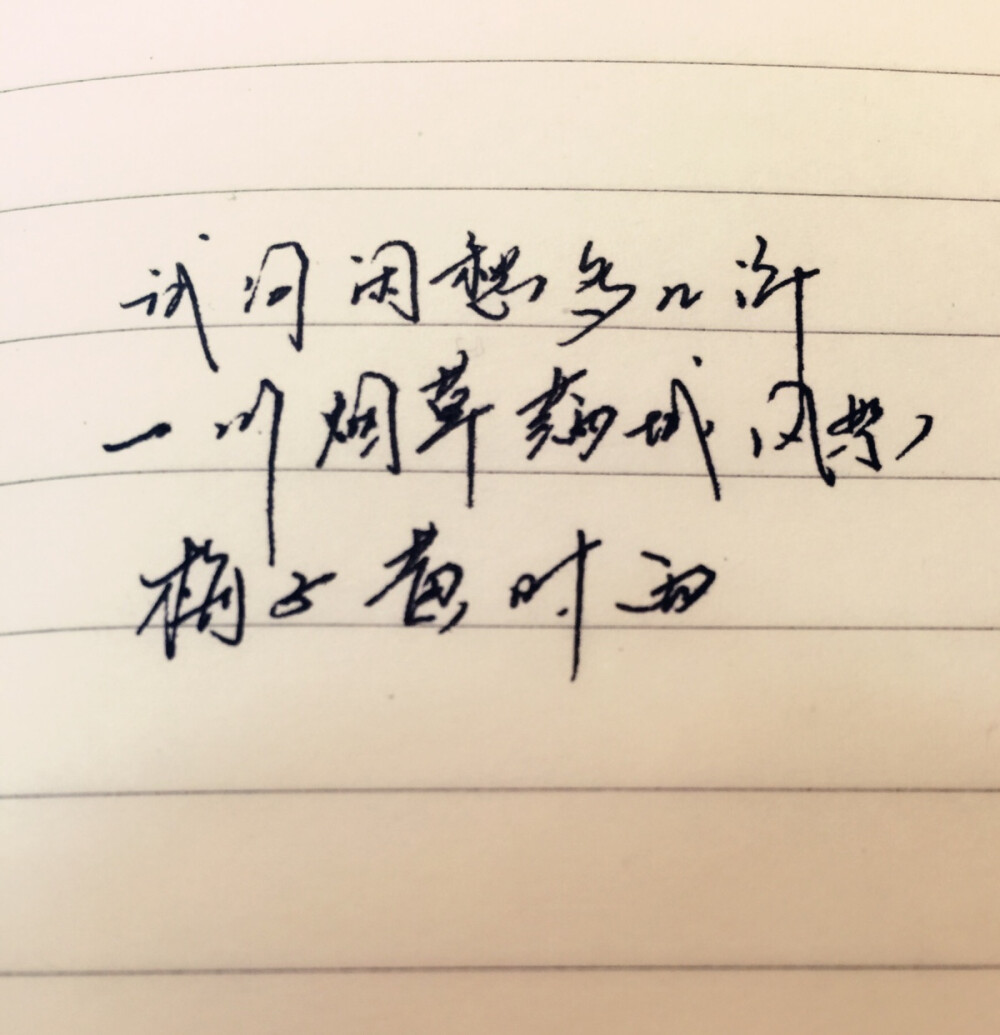 试问闲愁多几许
一川烟草满城风絮
梅子黄时雨